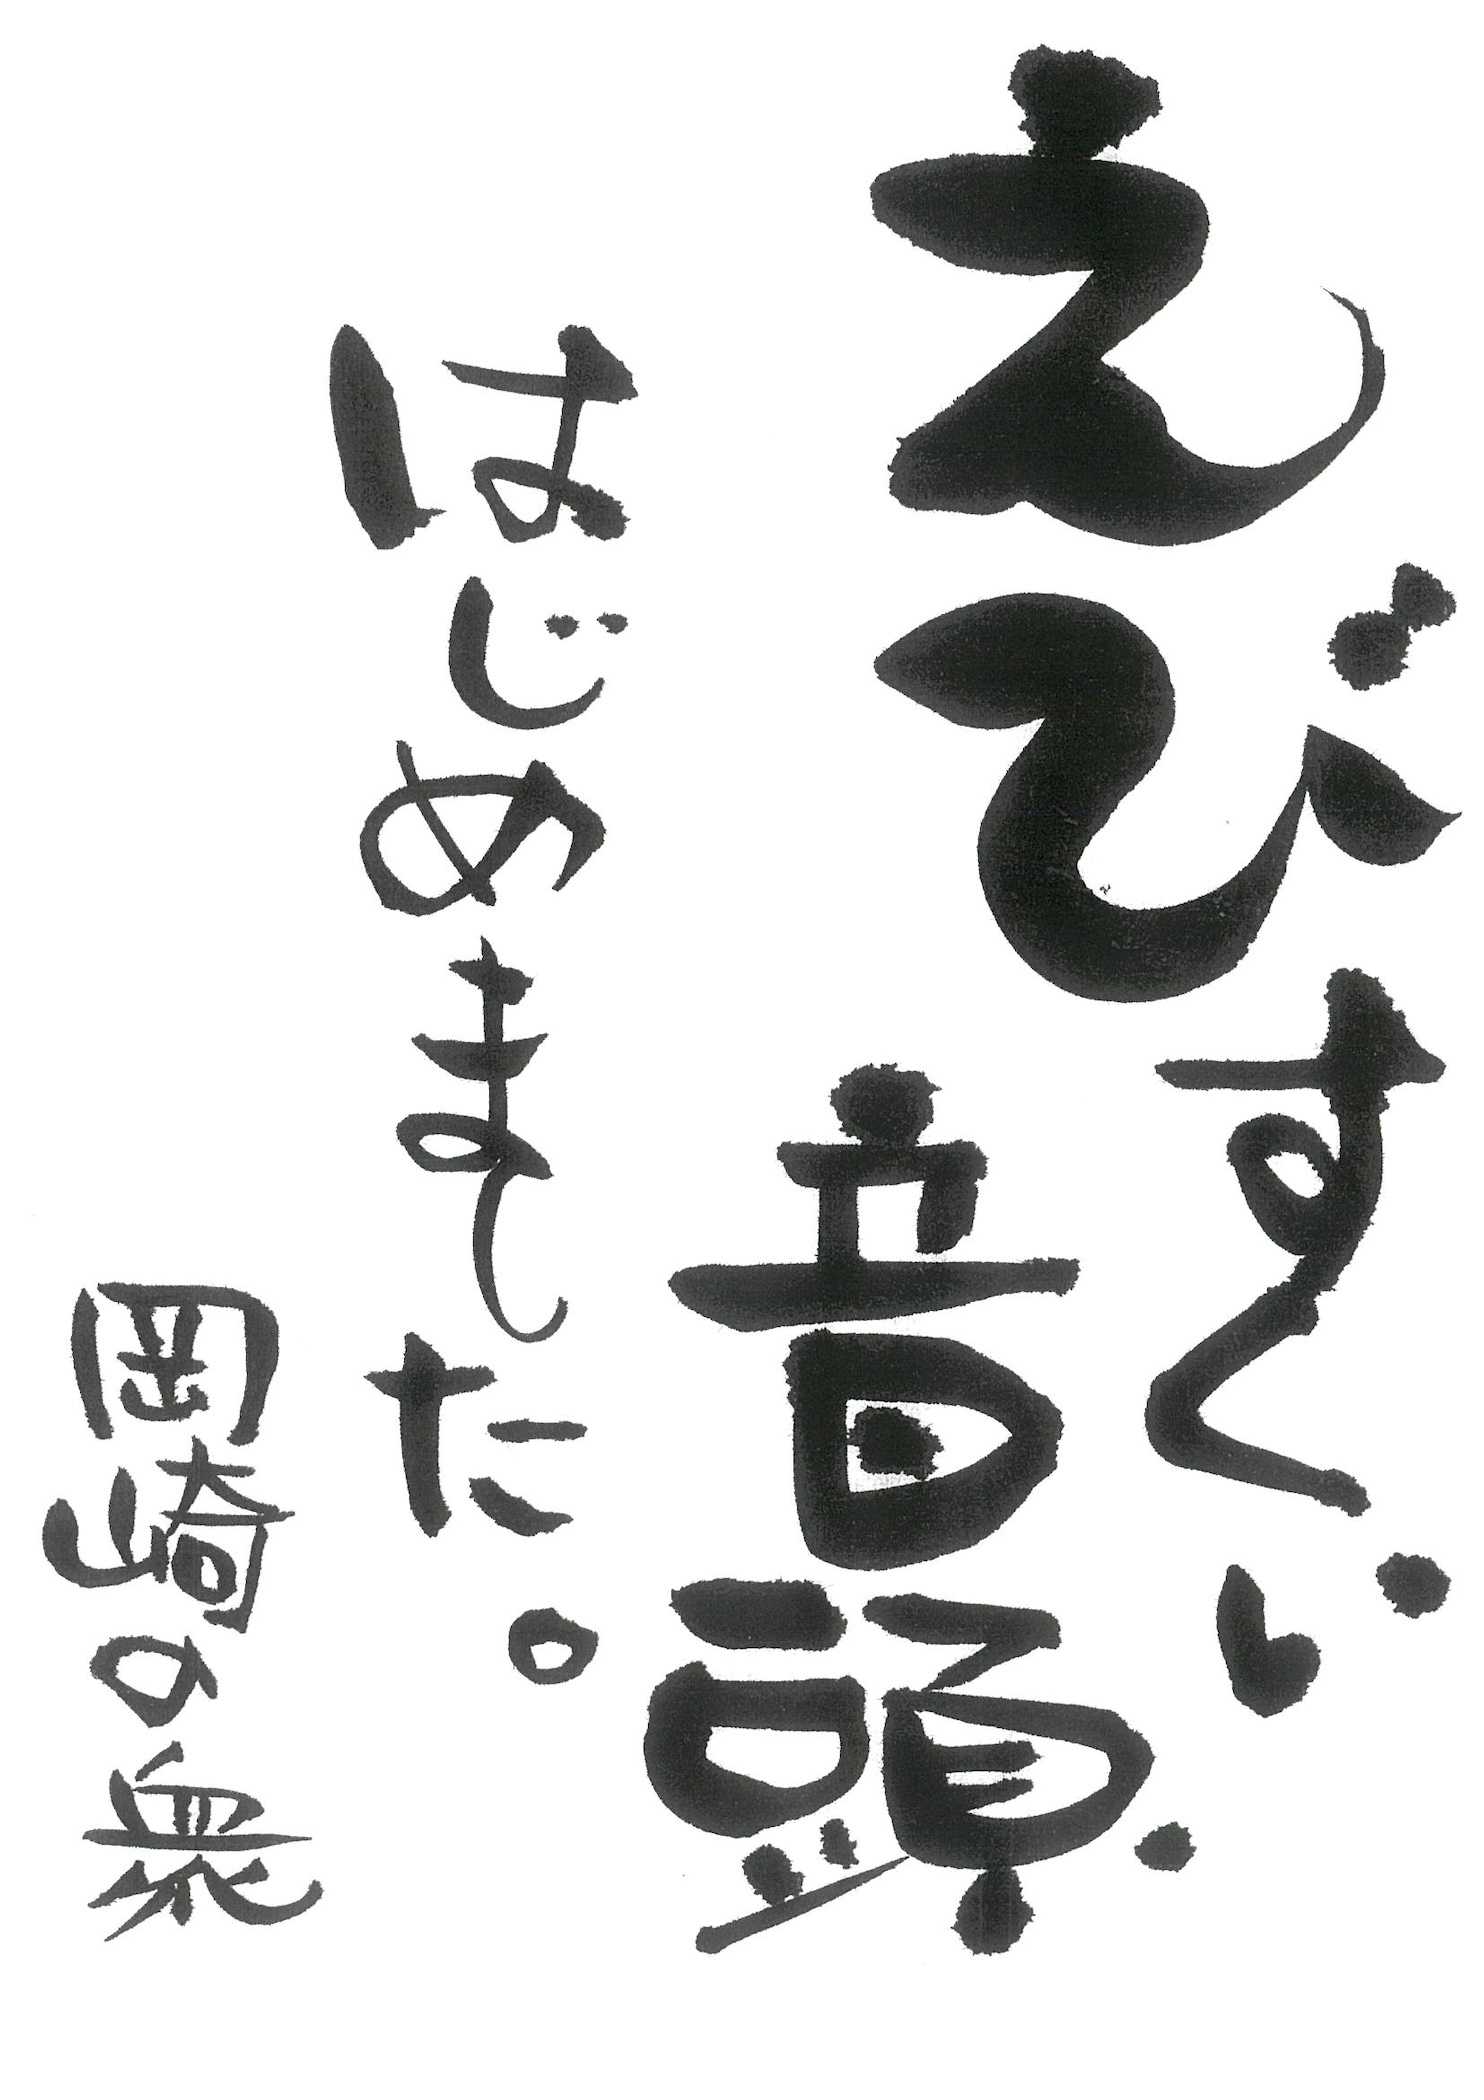 えびすくい
音頭
はじめました。
岡崎の衆